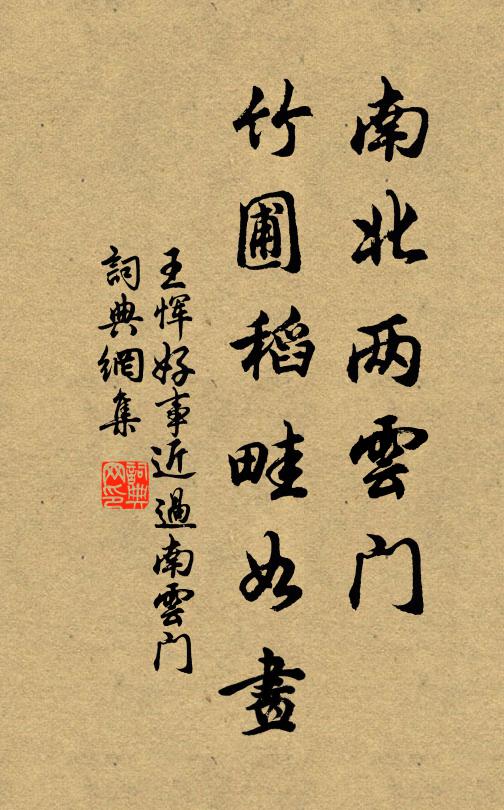 南北两雲门
竹圃稻畦如畫
王惲好事近過南雲门
詞典網集
詞典网印